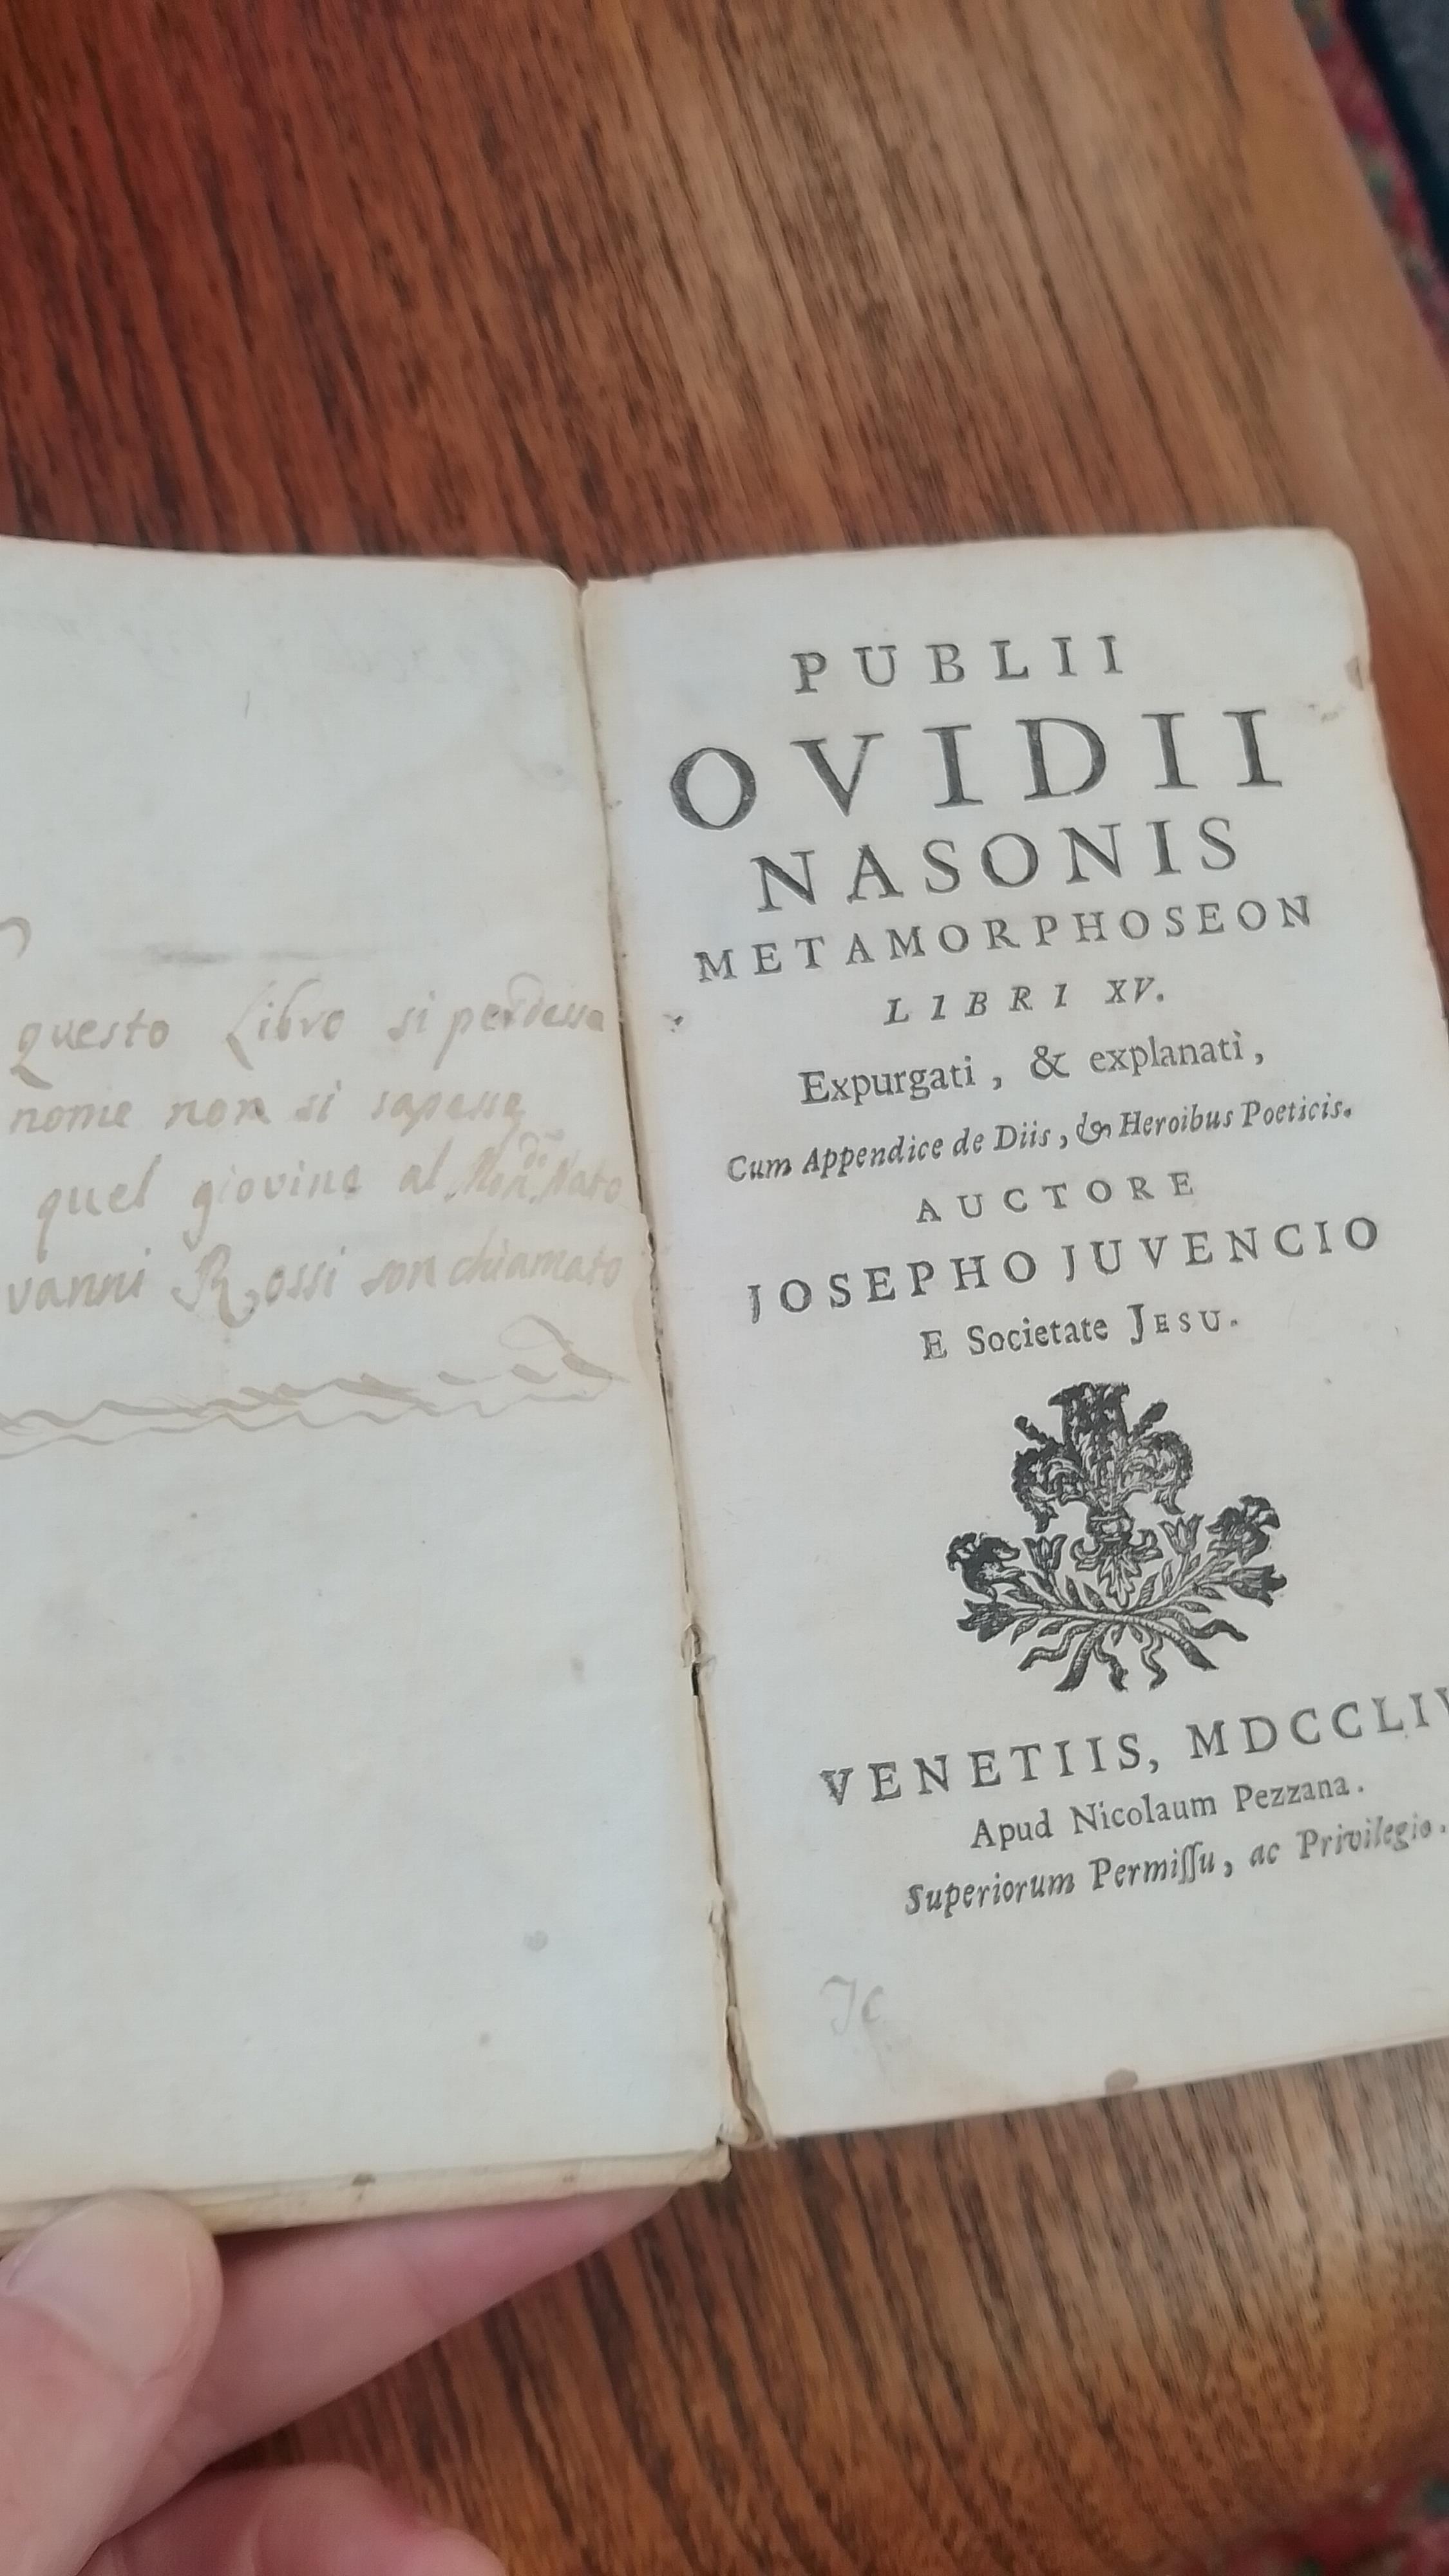 questo Libro si perdesse
nome non si sapesse
quel giovine al Mondo Nato
vanni Rossi son chiamato
PUBLII
OVIDII
NASONIS
METAMORPHOSEON
LIBRI XV.
Expurgati, & explanati,
Cum Appendice de Diis, & Heroibus Poeticis.
AUCTORE
JOSEPHO JUVENCIO
E Societate JESU.
VENETIIS, MDCCLIV
Apud Nicolaum Pezzana.
Superiorum Permiſſu, ac Privilegio.